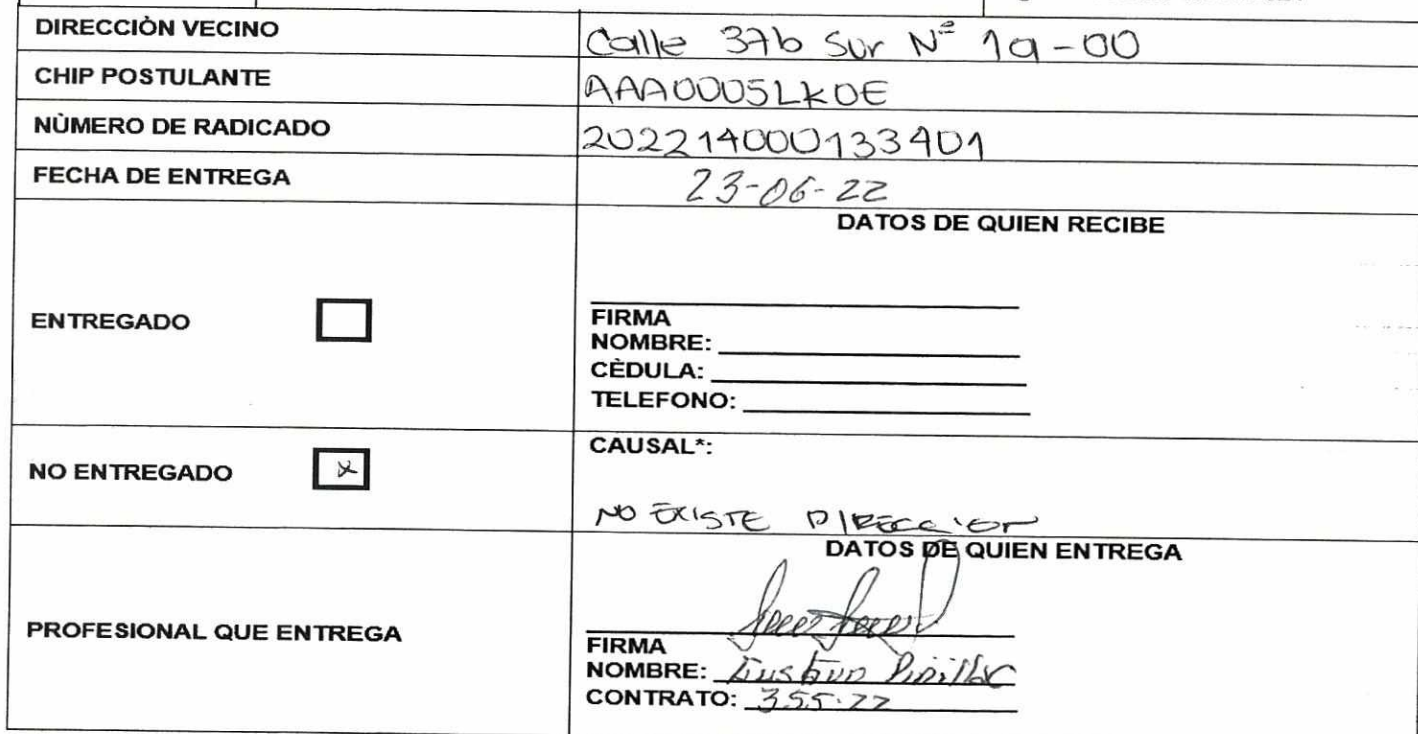 DIRECCIÒN VECINO
Calle 37b Sur Nº 1a-00
CHIP POSTULANTE
AAA0005LKOE
NÙMERO DE RADICADO
202214000133401
FECHA DE ENTREGA
23-06-22
DATOS DE QUIEN RECIBE
ENTREGADO
FIRMA
NOMBRE:
CÈDULA:
TELEFONO:
NO ENTREGADO x
CAUSAL*:
NO EXISTE DIRECCION
DATOS DE QUIEN ENTREGA
PROFESIONAL QUE ENTREGA
FIRMA
NOMBRE: Gustavo Pinilla
CONTRATO: 355-22